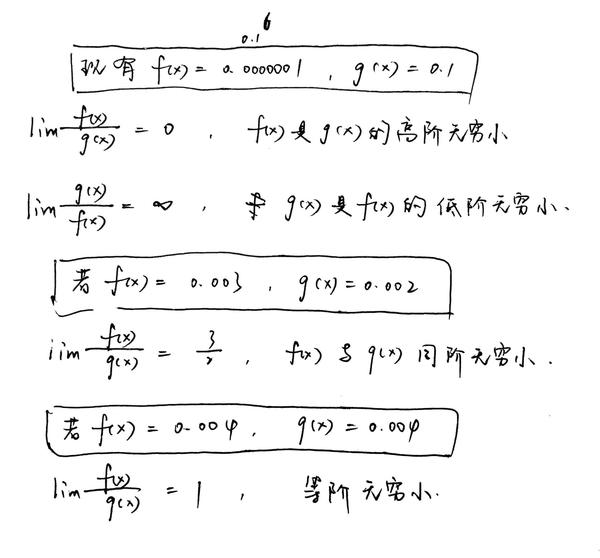 0.1⁶
现有 f(x) = 0.0000001 , g(x) = 0.1
lim f(x)/g(x) = 0 , f(x)是g(x)的高阶无穷小
lim g(x)/f(x) = ∞ , g(x)是f(x)的低阶无穷小.
若 f(x) = 0.003 , g(x) = 0.002
lim f(x)/g(x) = 3/2 , f(x)与g(x)同阶无穷小.
若 f(x) = 0.004 , g(x) = 0.004
lim f(x)/g(x) = 1 , 等阶无穷小.